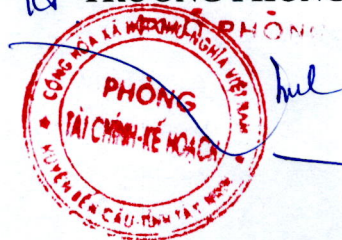 TRƯỞNG PHÒNG
PHÓ PHÒNG
CỘNG HÒA XÃ HỘI CHỦ NGHĨA VIỆT NAM
PHÒNG
TÀI CHÍNH-KẾ HOẠCH
HUYỆN BẾN CẦU-TỈNH TÂY NINH